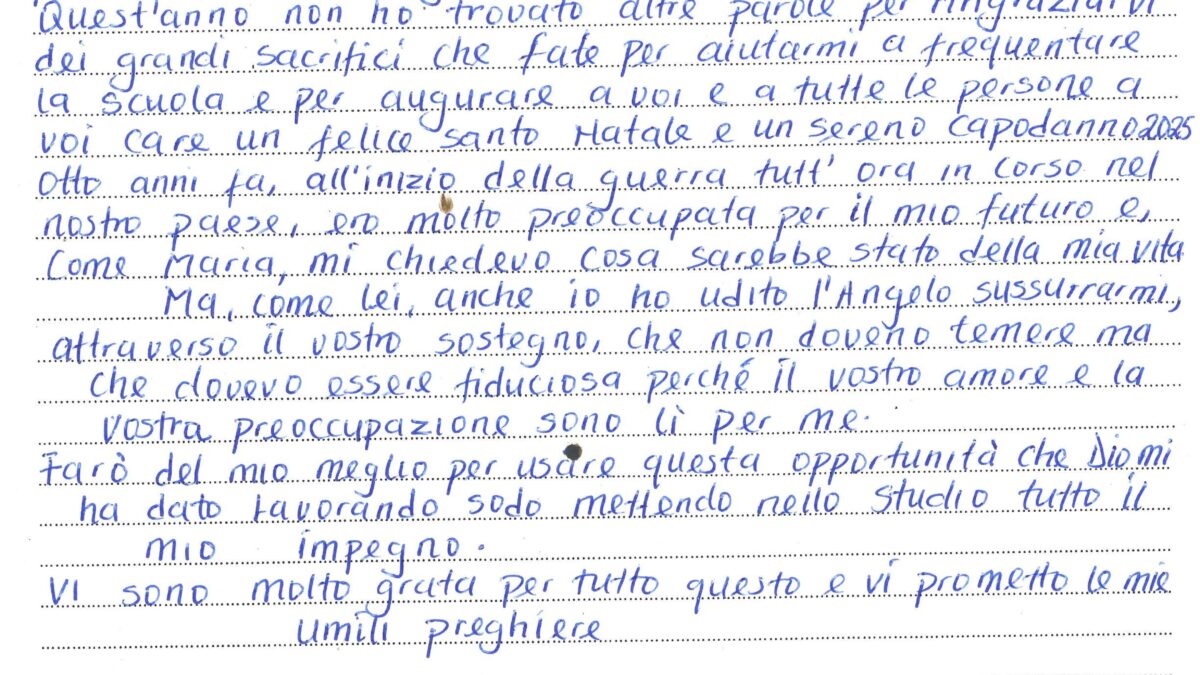 Quest'anno non ho trovato altre parole per ringraziarvi
dei grandi sacrifici che fate per aiutarmi a frequentare
la scuola e per augurare a voi e a tutte le persone a
voi care un felice santo Natale e un sereno capodanno 2025
Otto anni fa, all'inizio della guerra tutt' ora in corso nel
nostro paese, ero molto preoccupata per il mio futuro e,
Come Maria, mi chiedevo cosa sarebbe stato della mia vita
Ma, come lei, anche io ho udito l'Angelo sussurrarmi,
attraverso il vostro sostegno, che non doveno temere ma
che dovevo essere fiduciosa perché il vostro amore e la
vostra preoccupazione sono lì per me.
Farò del mio meglio per usare questa opportunità che Dio mi
ha dato lavorando sodo mettendo nello studio tutto il
mio impegno.
VI sono molto grata per tutto questo e vi prometto le mie
umili preghiere